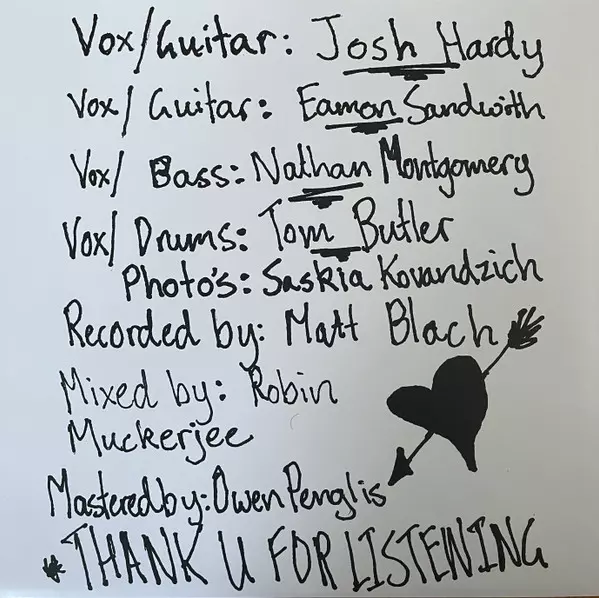 Vox/Guitar: Josh Hardy
Vox/Guitar: Eamon Sandwith
Vox/ Bass: Nathan Montgomery
Vox/ Drums: Tom Butler
Photo's: Saskia Kovandzich
Recorded by: Matt Blach
Mixed by: Robin
Muckerjee
Mastered by: Owen Penglis
*THANK U FOR LISTENING